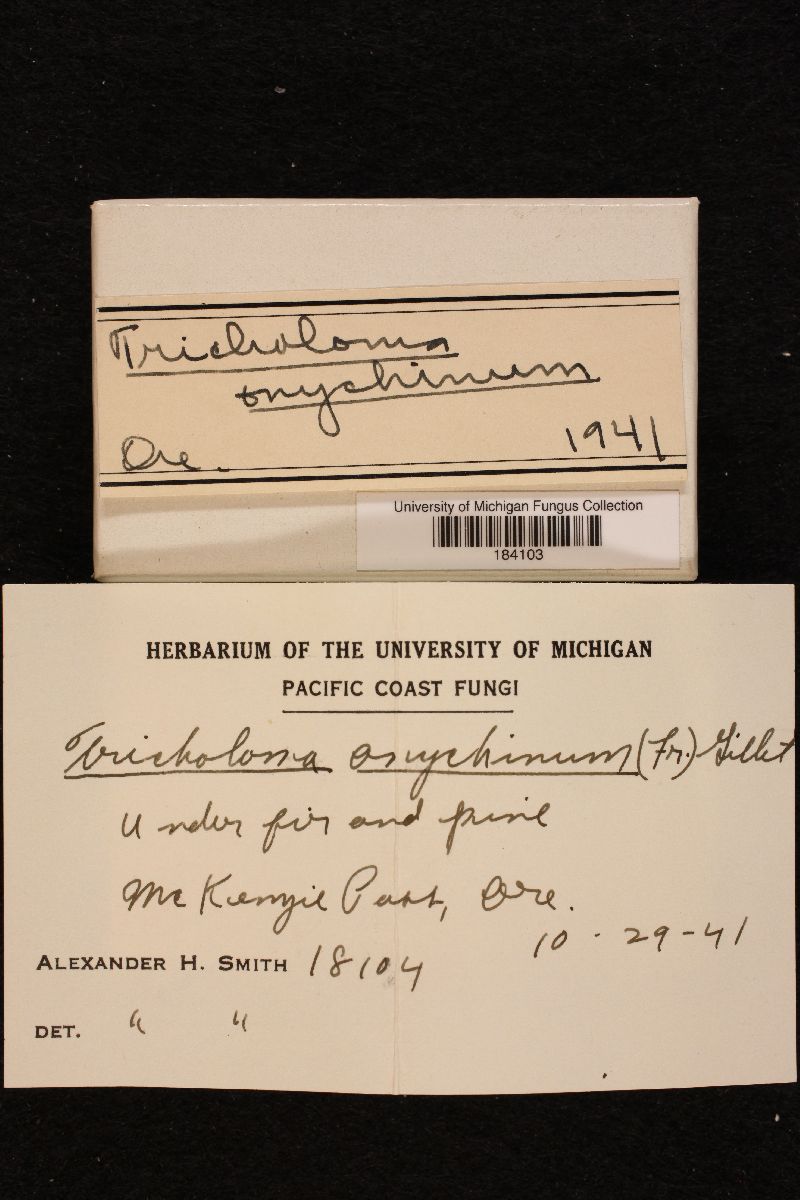 Tricholoma
onychinum
Ore. 1941
University of Michigan Fungus Collection
184103
HERBARIUM OF THE UNIVERSITY OF MICHIGAN
PACIFIC COAST FUNGI
Tricholoma onychinum (Fr.) Gillet
Under fir and pine
McKenzie Pass, Ore.
10-29-41
ALEXANDER H. SMITH 18104
DET. " "